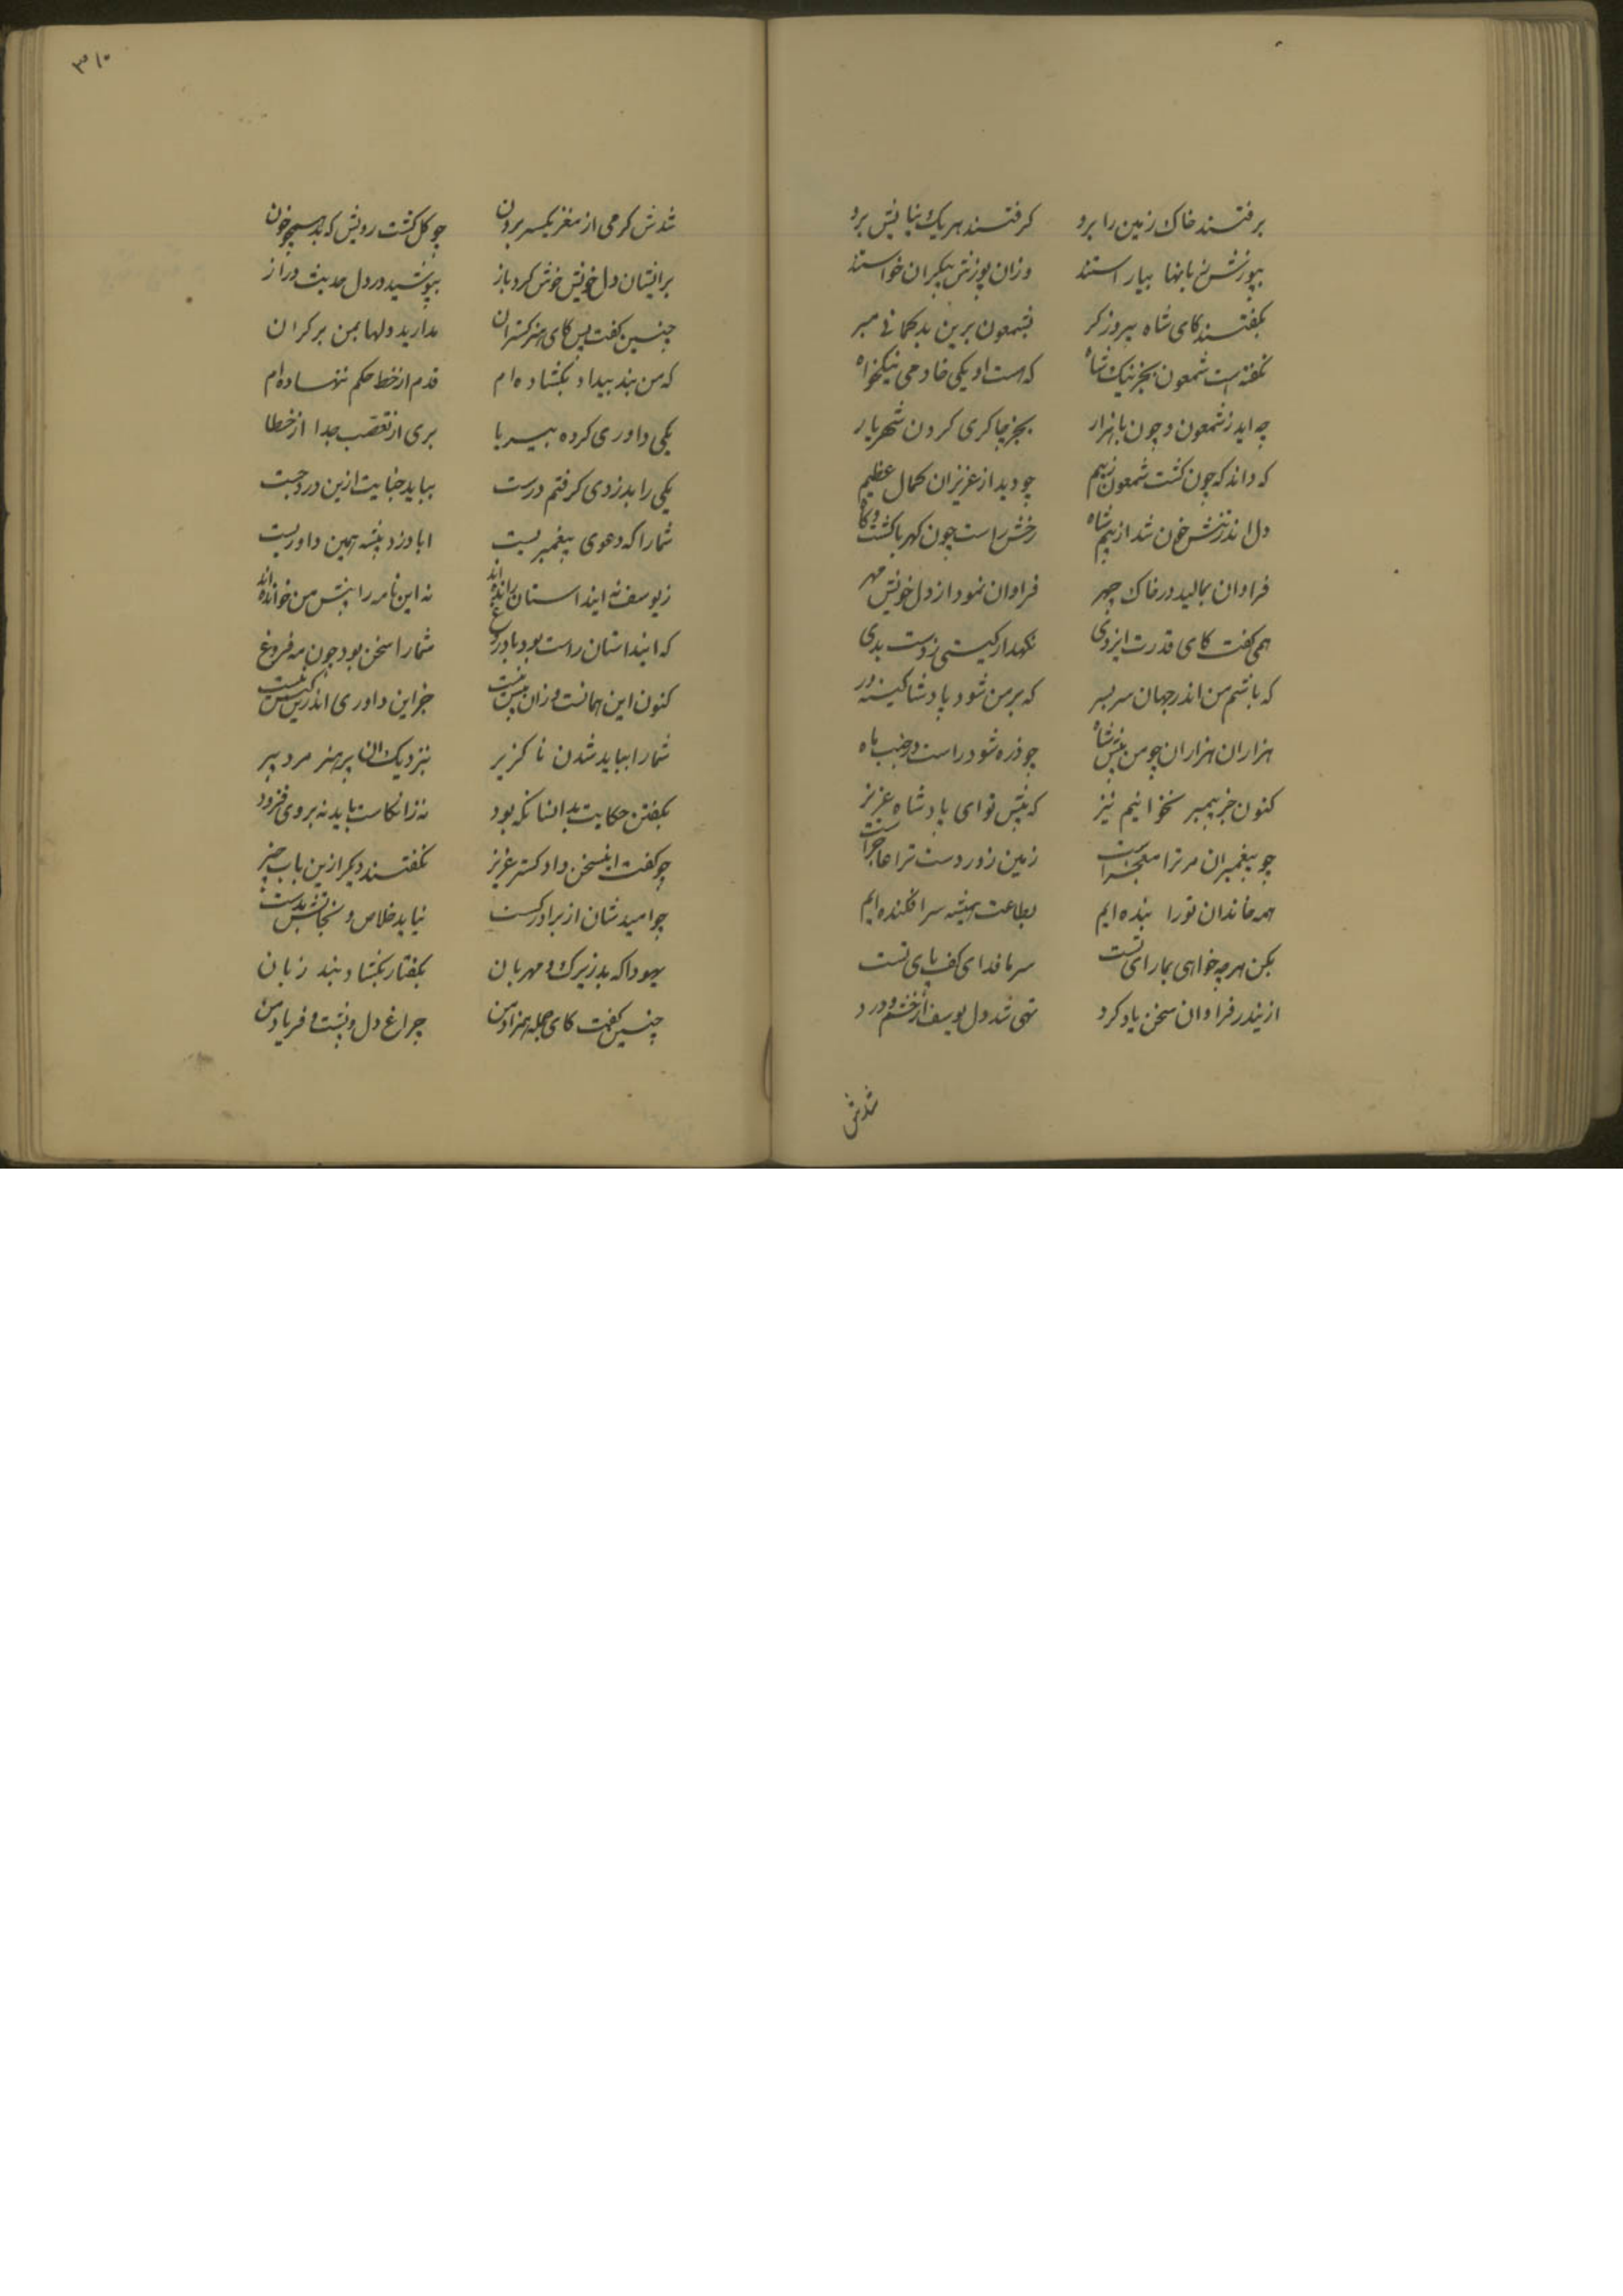 برفتند خاک زمین را برو گرفتند هر یک نیایش برو
بپوزش زبانها بیاراستند وزان پوزش بیکران خواستند
بگفتند کای شاه پیروزگر بشمعون برین بدگمانی مبر
نگفته است شمعون بجز نیک شاه که هست او یکی خادمی نیکخواه
چه اید ز شمعون و چون با هزار بجز چاکری کردن شهریار
که داند که چون گشت شمعون ز بیم چو دید از عزیزان کمال عظیم
دل اندر تنش خون شد از بیم شاه رخش راست چون کهربا گشت و کاه
فراوان بمالید در خاک چهر فراوان نمود از دل خویش مهر
همی گفت کای قدرت ایزدی نگهدار گیتی ز دست بدی
که باشم من اندر جهان سربسر که بر من شود پادشا کینه ور
هزاران هزاران چو من پیش شاه چو ذره شود راست در جنب ماه
کنون جز پیمبر نخوانیم نیز که پیش تو ای پادشاه عزیز
چو پیغمبران مر ترا معجزاست زمین زور دست ترا عاجزاست
همه خاندان تورا بنده ایم بطاعت همیشه سرافکنده ایم
بکن هرچه خواهی بما رای تست سر ما فدای کف پای تست
ازیندر فراوان سخن یاد کرد تهی شد دل یوسف از خشم و درد
شدش
۳۱۰
شدش گرمی از مغز یکسر برون چو گل گشت رویش که بد همچو خون
برایشان دل خویش خوش کرد باز بپوشید در دل حدیث دراز
چنین گفت پس کای هنر گستران مدارید دلها بمن بر گران
که من بند بیداد بگشاده ام قدم از خط حکم ننهاده ام
یکی داوری کرده بی ریا بری از تعصب جدا از خطا
یکی را بدزدی گرفتم درست بباید جنایت ازین در جست
شما را که دعوی پیغمبریست ابا دزد پیشه همین داوریست
ز یوسف نه اینداستان رانده اند نه این نامه را پیش من خوانده اند
که اینداستان راست بود یا دروغ شما را سخن بود چون مه فروغ
کنون این همانست وزان بیش نیست جز این داوری اندرین کیش نیست
شما را بباید شدن ناگزیر بنزدیک ان پر هنر مرد پیر
بگفتن حکایت بدانسان که بود نه زان کاست باید نه بر وی فزود
چو گفت اینسخن دادگستر عزیز نگفتند دیگر ازین باب چیز
چو امیدشان از برادر گسست نیاید خلاص و نجاتش بدست
یهودا که بد زیرک و مهربان بگفتار بگشاد بند زبان
چنین گفت کای جمله همزاد من چراغ دل و پشت و فریاد من